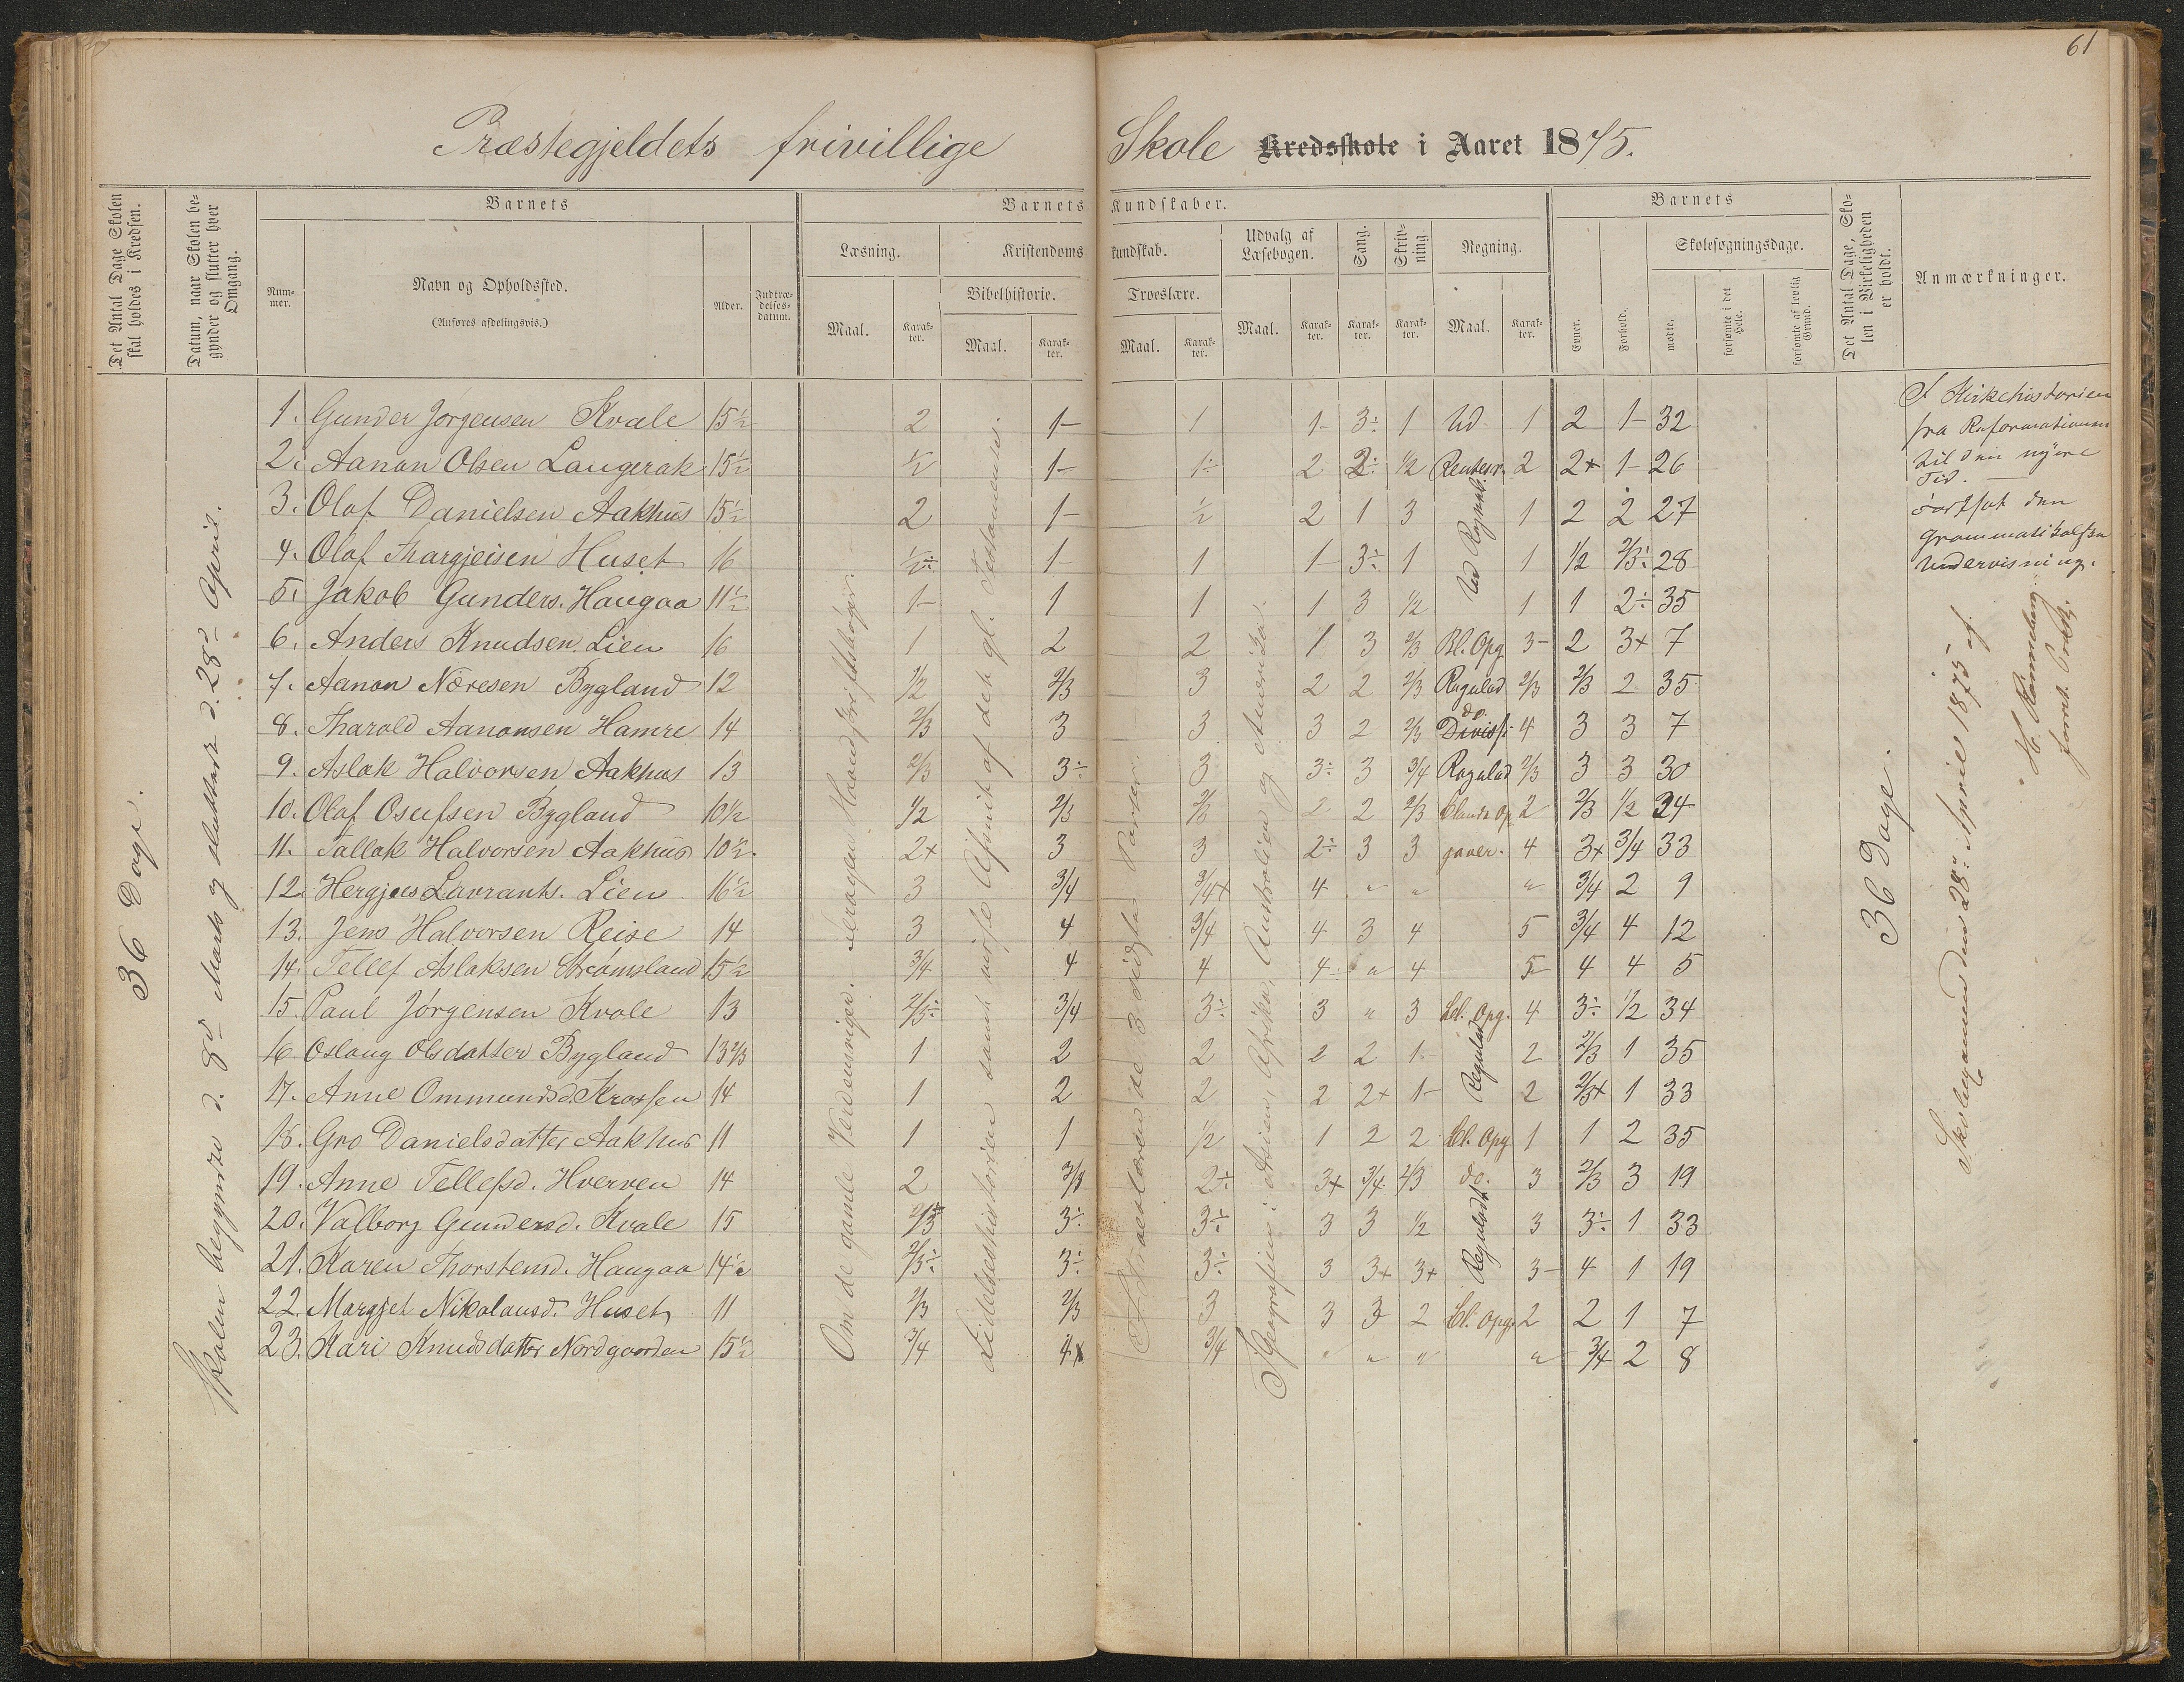 61
Præstegjeldets frivillige Skole Kredsskole i Aaret 1875.
Det Antal Dage Skolen skal holdes i Kredsen.
Datum, naar Skolen begynder og slutter hver Omgang.
Barnets
Nummer.
Navn og Opholdssted.
(Anføres afdelingsvis.)
Alder.
Indtrædelsesdatum.
Barnets Kundskaber.
Læsning.
Maal.
Karakter.
Kristendomskundskab.
Bibelhistorie.
Maal.
Karakter.
Troeslære.
Maal.
Karakter.
Udvalg af Læsebogen.
Maal.
Karakter.
Sang.
Karakter.
Skrivning.
Karakter.
Regning.
Maal.
Karakter.
Barnets
Evner.
Forhold.
Skolesøgningsdage.
mødte.
forsømte i det Hele.
forsømte af lovlig Grund.
Det Antal Dage, Skolen i Virkeligheden er holdt.
Anmærkninger.
36 Dage.
Skolen begyndte d. 8de Marts og sluttede d. 28de April.
1. Gunder Jörgensen Kvale 15½ 2 1- 1 1- 3÷ 1 Ud 1 2 1- 32
2. Aanon Olsen Langerak 15½ ½ 1- 1÷ 2 2÷ ½ Rentesr. 2 2+ 1- 26
3. Olaf Danielsen Aakhus 15½ 2 1- ½ 2 1 3 1 2 2 27
4. Olaf Thargjeisen Huset 16 ½÷ 1- 1 1- 3÷ 1 1 ½ 2/3÷ 28
5. Jakob Gunders. Haugaa 11½ 1- 1 1 1 3 ½ 1 1 2÷ 35
6. Anders Knudsen Lien 16 1 2 2 1 3 2/3 Bl. Opg 3- 2 3+ 7
7. Aanon Næresen Bygland 12 ½ 2/3 3 2 2 2/3 Regulad 2/3 2/3 2 35
8. Tharald Aanonsen Hamre 14 2/3 3 3 3 2 2/3 do. Divis 4 3 3 7
9. Aslak Halvorsen Aakhus 13 2/3 3÷ 3 3÷ 3 3/4 Regulad 2/3 3 3 30
10. Olaf Osufsen Bygland 10½ ½ 2/3 2/3 2 2 2/3 Bland. Op 2 2/3 ½ 34
11. Tallak Halvorsen Aakhus 10½ 2+ 3 3 2÷ 3 3 gaver. 4 3+ 3/4 33
12. Hergjus Lavrants. Lien 16½ 3 3/4 3/4+ 4 " " " 3/4 2 9
13. Jens Halvorsen Reise 14 3 4 3/4 4 3 4 5 3/4 4 12
14. Tellef Aslaksen Strømsland 15½ 3/4 4 4 4 " 4 5 4 4 5
15. Paul Jørgensen Kvale 13 2/3÷ 3/4 3÷ 3 " 3 bl. Opg. 4 3÷ ½ 34
16. Oslaug Olsdatter Bygland 13 2/3 1 2 2 2 2 1 2 2/3 1 35
17. Anne Ommundsd. Krossen 14 1 2 2 2 2+ 1- 2 2/3+ 1 33
18. Gro Danielsdatter Aakhus 11 1 1 ½ 1 2 2 bl. Opg 1 1 2 35
19. Anne Tellefsd. Hverven 14 2 3/4 2÷ 3+ 3/4 2/3 do. 3 2/3 3 19
20. Valborg Gundersd. Kvale 15 2/3 3÷ 3÷ 3 3 ½ 3 3÷ 1 33
21. Karen Thorstensd. Haugaa 14½ 2/3÷ 3÷ 3÷ 3 3+ 3+ 3- 4 1 19
22. Margjet Nikolausd. Huset 11 2/3 2/3 3 3 3 2 bl. Opg. 2 2 1 7
23. Kari Knudsdatter Nordgaarden 15½ 3/4 4+ 3/4 " " " " 3/4 2 8
Om de gamle Verdensriger.
Lidelseshistorien samt
af det gl. Testamente.
de 3 sidste Parter.
I Geografien: Asien, Afrika, Australien og Amerika.
Reguladt
36 Dage.
I Kirkehistorien
fra Reformationen
til den nyere
Tid. —
fortsat den
Grammatikalske
Undervisning.
Skoleexamen den 28de April 1875 af